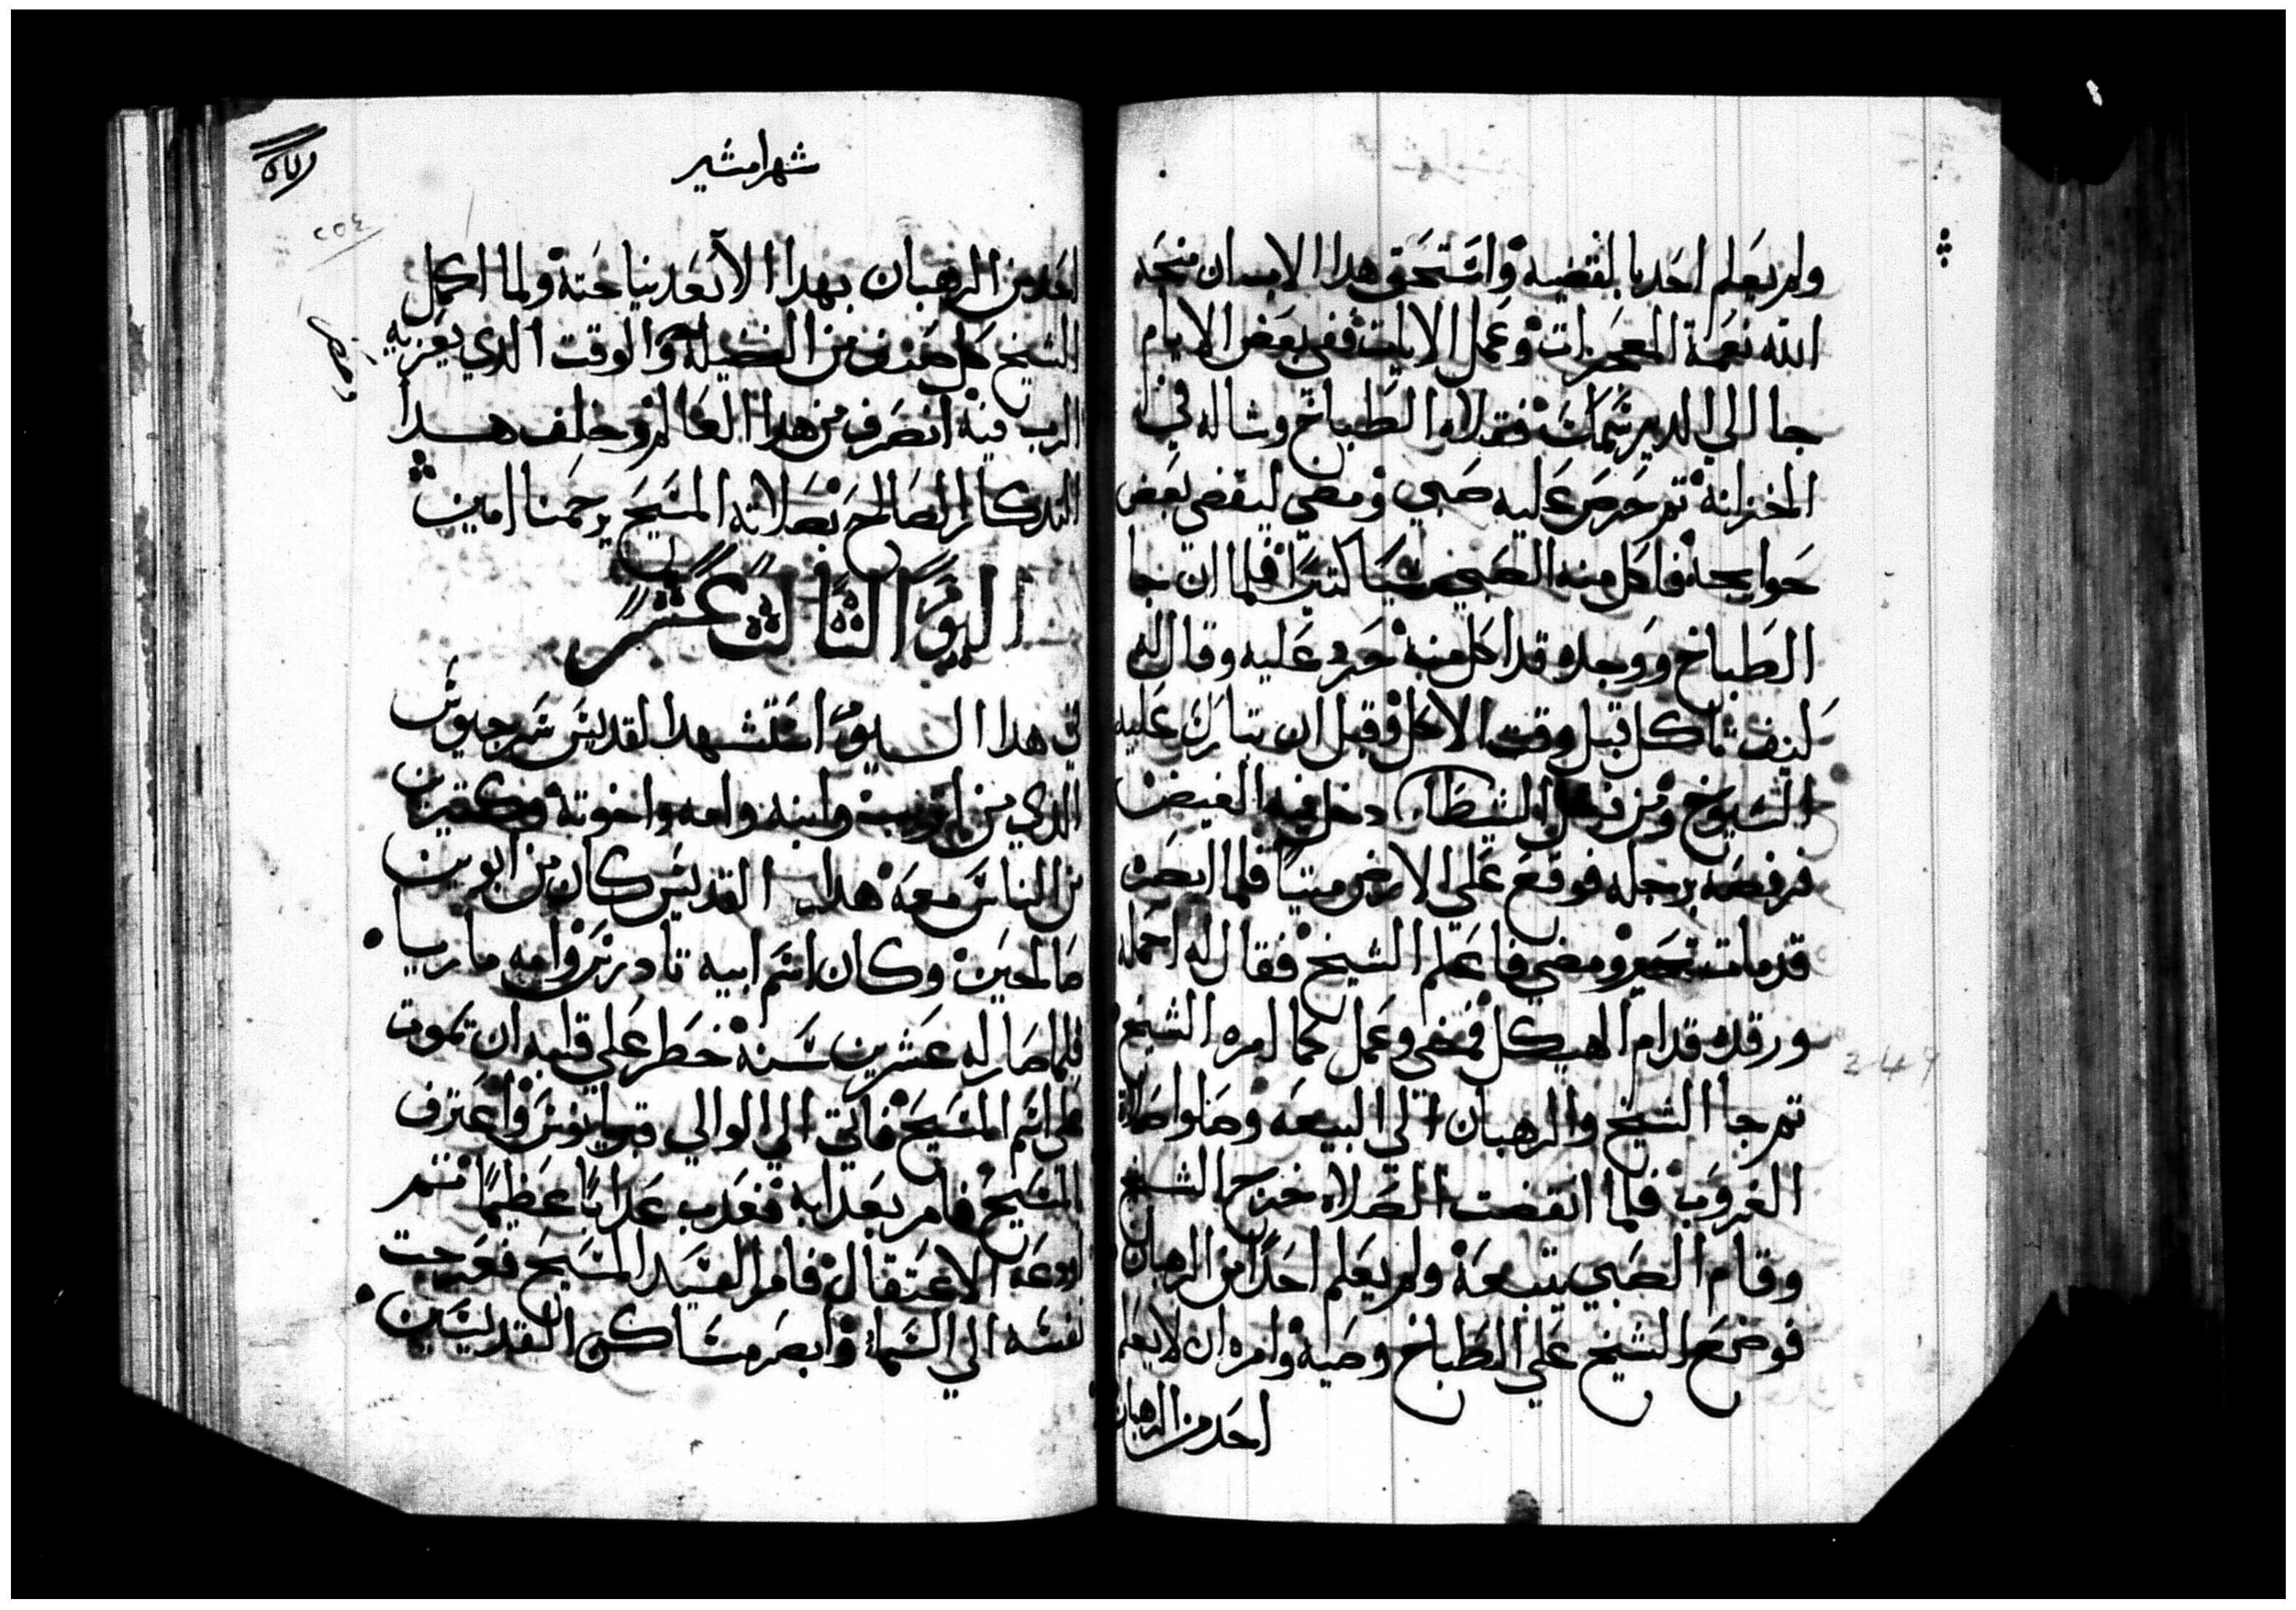 ولم يعلم احد بالقضيه واستحق هدا الانسان منحه
الله نعمة المعجزات وعمل الايات ففي بعض الايام
جا الي الدير سمك فقلاه الطباخ وشاله في
الخزانة تم حرص عليه صبي ومضي ليقضي بعض
حوايجه فاكل منه الصبي شيا كتيرا فلما ان جا
الطباخ ووجده قد اكل منه حرد عليه وقال له
كيف تاكل قبل وقت الاكل وقبل ان تبارك عليه
الشيوخ ومن فعل الشيطان دخل فيه الغيض
فرفصه برجله فوقع علي الارض ميتا فلما ابصره
قد مات تحير ومضي فاعلم الشيخ فقال له احمله
ورقده قدام الهيكل فمضي وعمل كما امره الشيخ
تم جا الشيخ والرهبان الي البيعه وصلوا صلاة
الغروب فلما انقضت الصلاه خرج الشيخ
وقام الصبي يتبعه ولم يعلم احدا من الرهبان
فوضع الشيخ علي الطباخ وصيه وامره ان لا يعلم
احد من الرهبان
شهر امشير
٢٥٤
احد من الرهبان بهدا الا بعد نياحته ولما اكمل
الشيخ كل صنف من الفضيله والوقت الدي يعزيه
الرب فيه انصرف من هدا العالم وخلف هدا
التدكار الصالح بصلاته المسيح يرحمنا امين
اليوم الثالث عشر
في هدا اليوم استشهد القديس سرجيوس
الدي من اتريب وابيه وامه واخوته وكتيرين
من الناس معه هدا القديس كان من ابوين
صالحين وكان اسم ابيه تادرس وامه ماريا
فلما صار له عشرين سنه خطر علي قلبه ان يموت
علي اسم المسيح فاتي الي الوالي قبريانوس واعترف
بالمسيح فامر بعدابه فعدب عدابا عظيما تم
اودعه الاعتقال فامر السيد المسيح فعرجت
نفسه الي السما وابصر مساكن القديسين
249